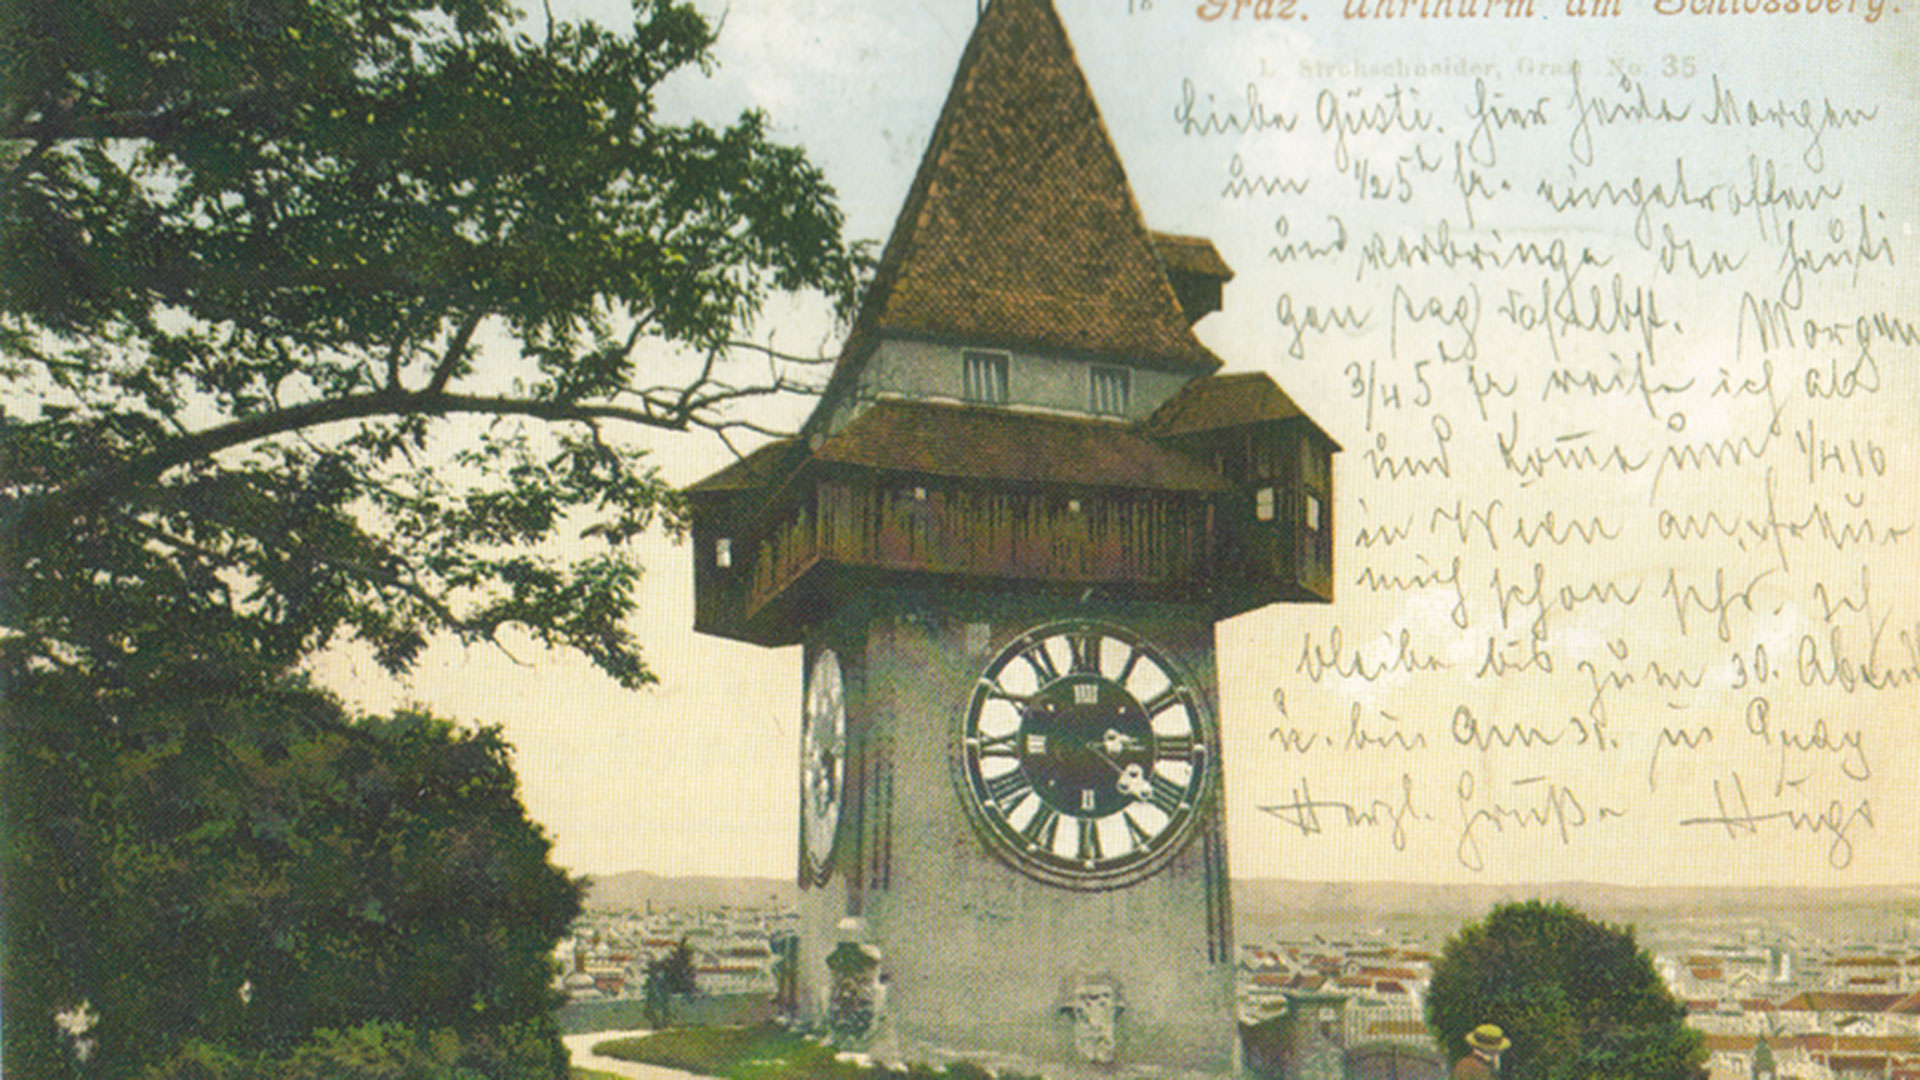 Graz. Uhrthurm am Schlossberg.
L. Strohschneider, Graz No. 35
Liebe Gusti. Hier heute Morgen
um 1/2 5h fr. eingetroffen
und verbringe den heuti
gen Tag daselbst. Morgen
3/4 5h fr reise ich ab
und kom̅e um 1/4 10
in Wien an, freue
mich schon sehr. Ich
bleibe bis zum 30. Abend
u. bin am 31. in
Herzl. Grüße Hugo
XII
III
IIII
II